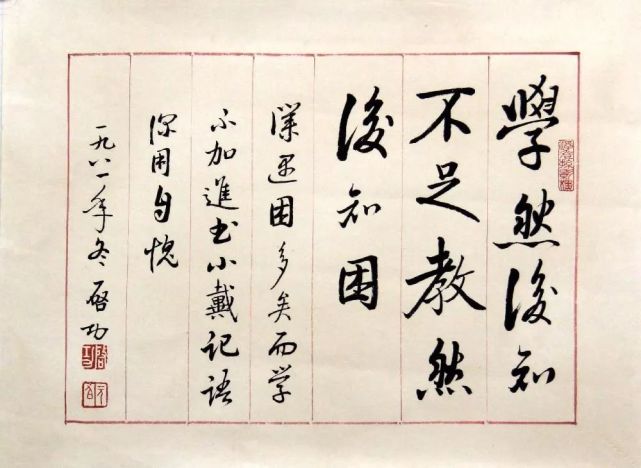 學然後知
不足教然
後知困
僕遇困多矣而学
不加進书小戴记语
深用自愧
一九八一年冬啓功